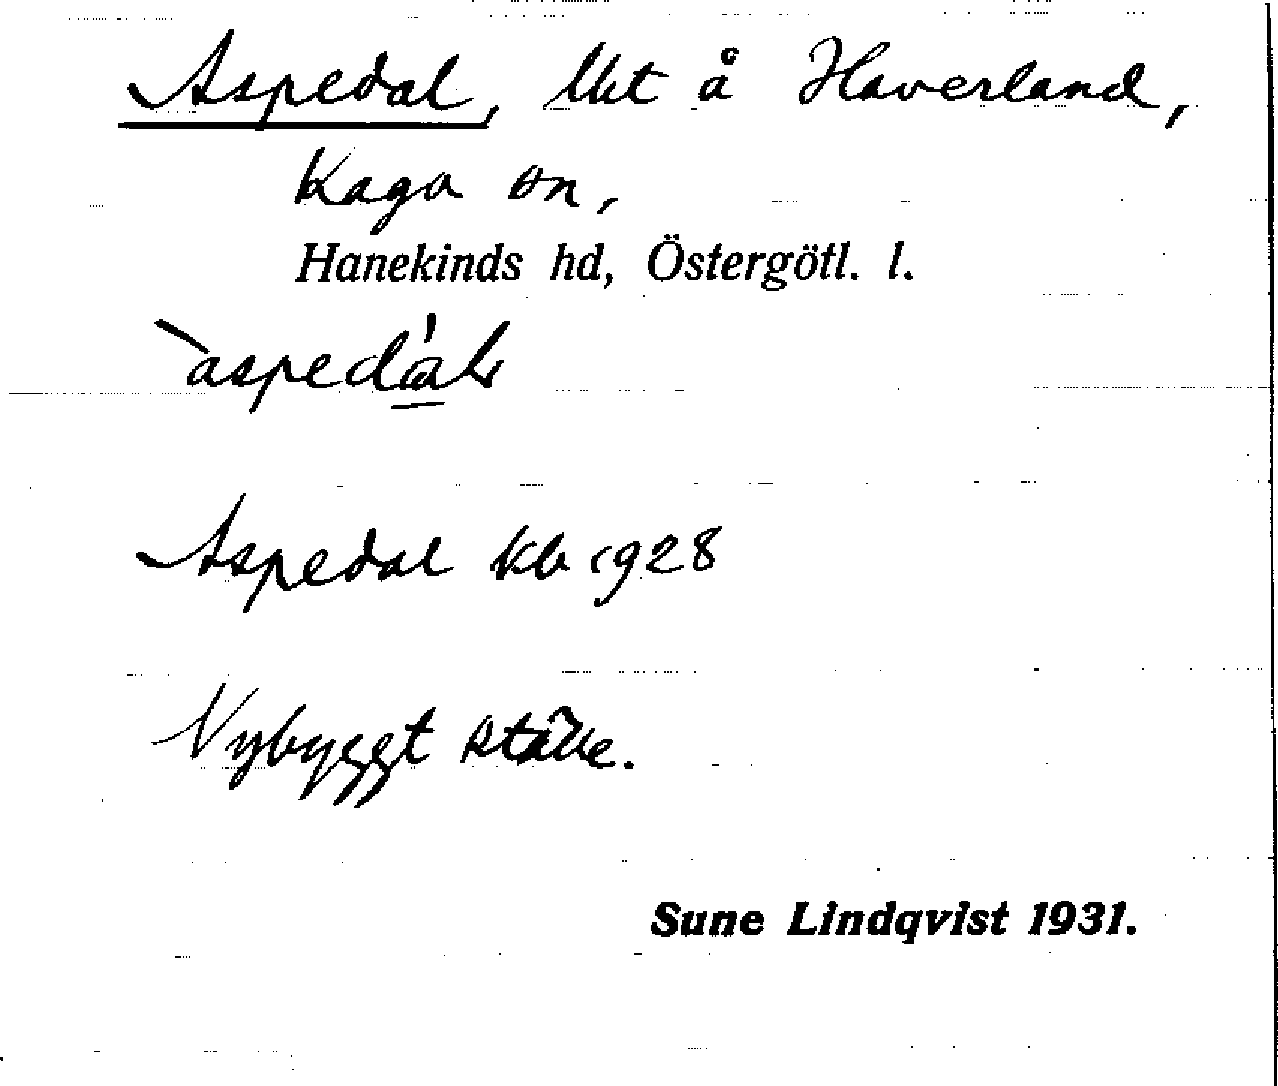 Aspedal, lht å Haverland,
Kaga sn,
Hanekinds hd, Östergötl. l.
Aspedal kb 1928
Nybyggt ställe.
Sune Lindqvist 1931.